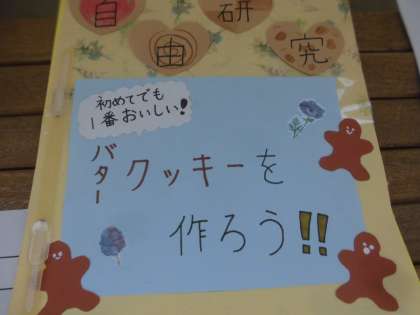 自由研究
初めてでも
1番おいしい!
バタークッキーを
作ろう!!